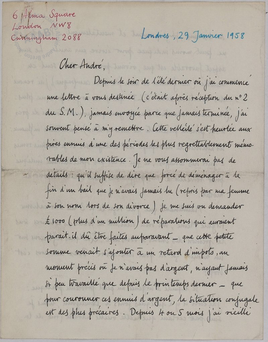 Square
London NW8
Cunningham 2088
Londres, 29 Janvier, 1958
Cher André,
Depuis le soir de l'été dernier où j'ai commencé
une lettre à vous destinée (c'était après réception du n° 2
du S.M.), jamais envoyée parce que jamais terminée, j'ai
souvent pensé à m'y remettre. Cette velléité s'est heurtée aux
pires ennuis d'une des périodes les plus regrettablement mémo-
rables de mon existence. Je ne vous assommerai pas de
détails : qu'il suffise de dire que forcé de déménager à la
fin d'un bail que je n'avais jamais lu (refait par ma femme
à son nom lors de son divorce) je me suis vu demander
£1000 (plus d'un million) de réparations qui auraient
paraît-il dû être faites auparavant — que cette petite
somme venait s'ajouter à un retard d'impôts, au
moment précis où je n'avais pas d'argent, n'ayant jamais
si peu travaillé que depuis le printemps dernier — que
pour couronner ces ennuis d'argent, la situation conjugale
est des plus précaires. Depuis 4 ou 5 mois j'ai vieilli